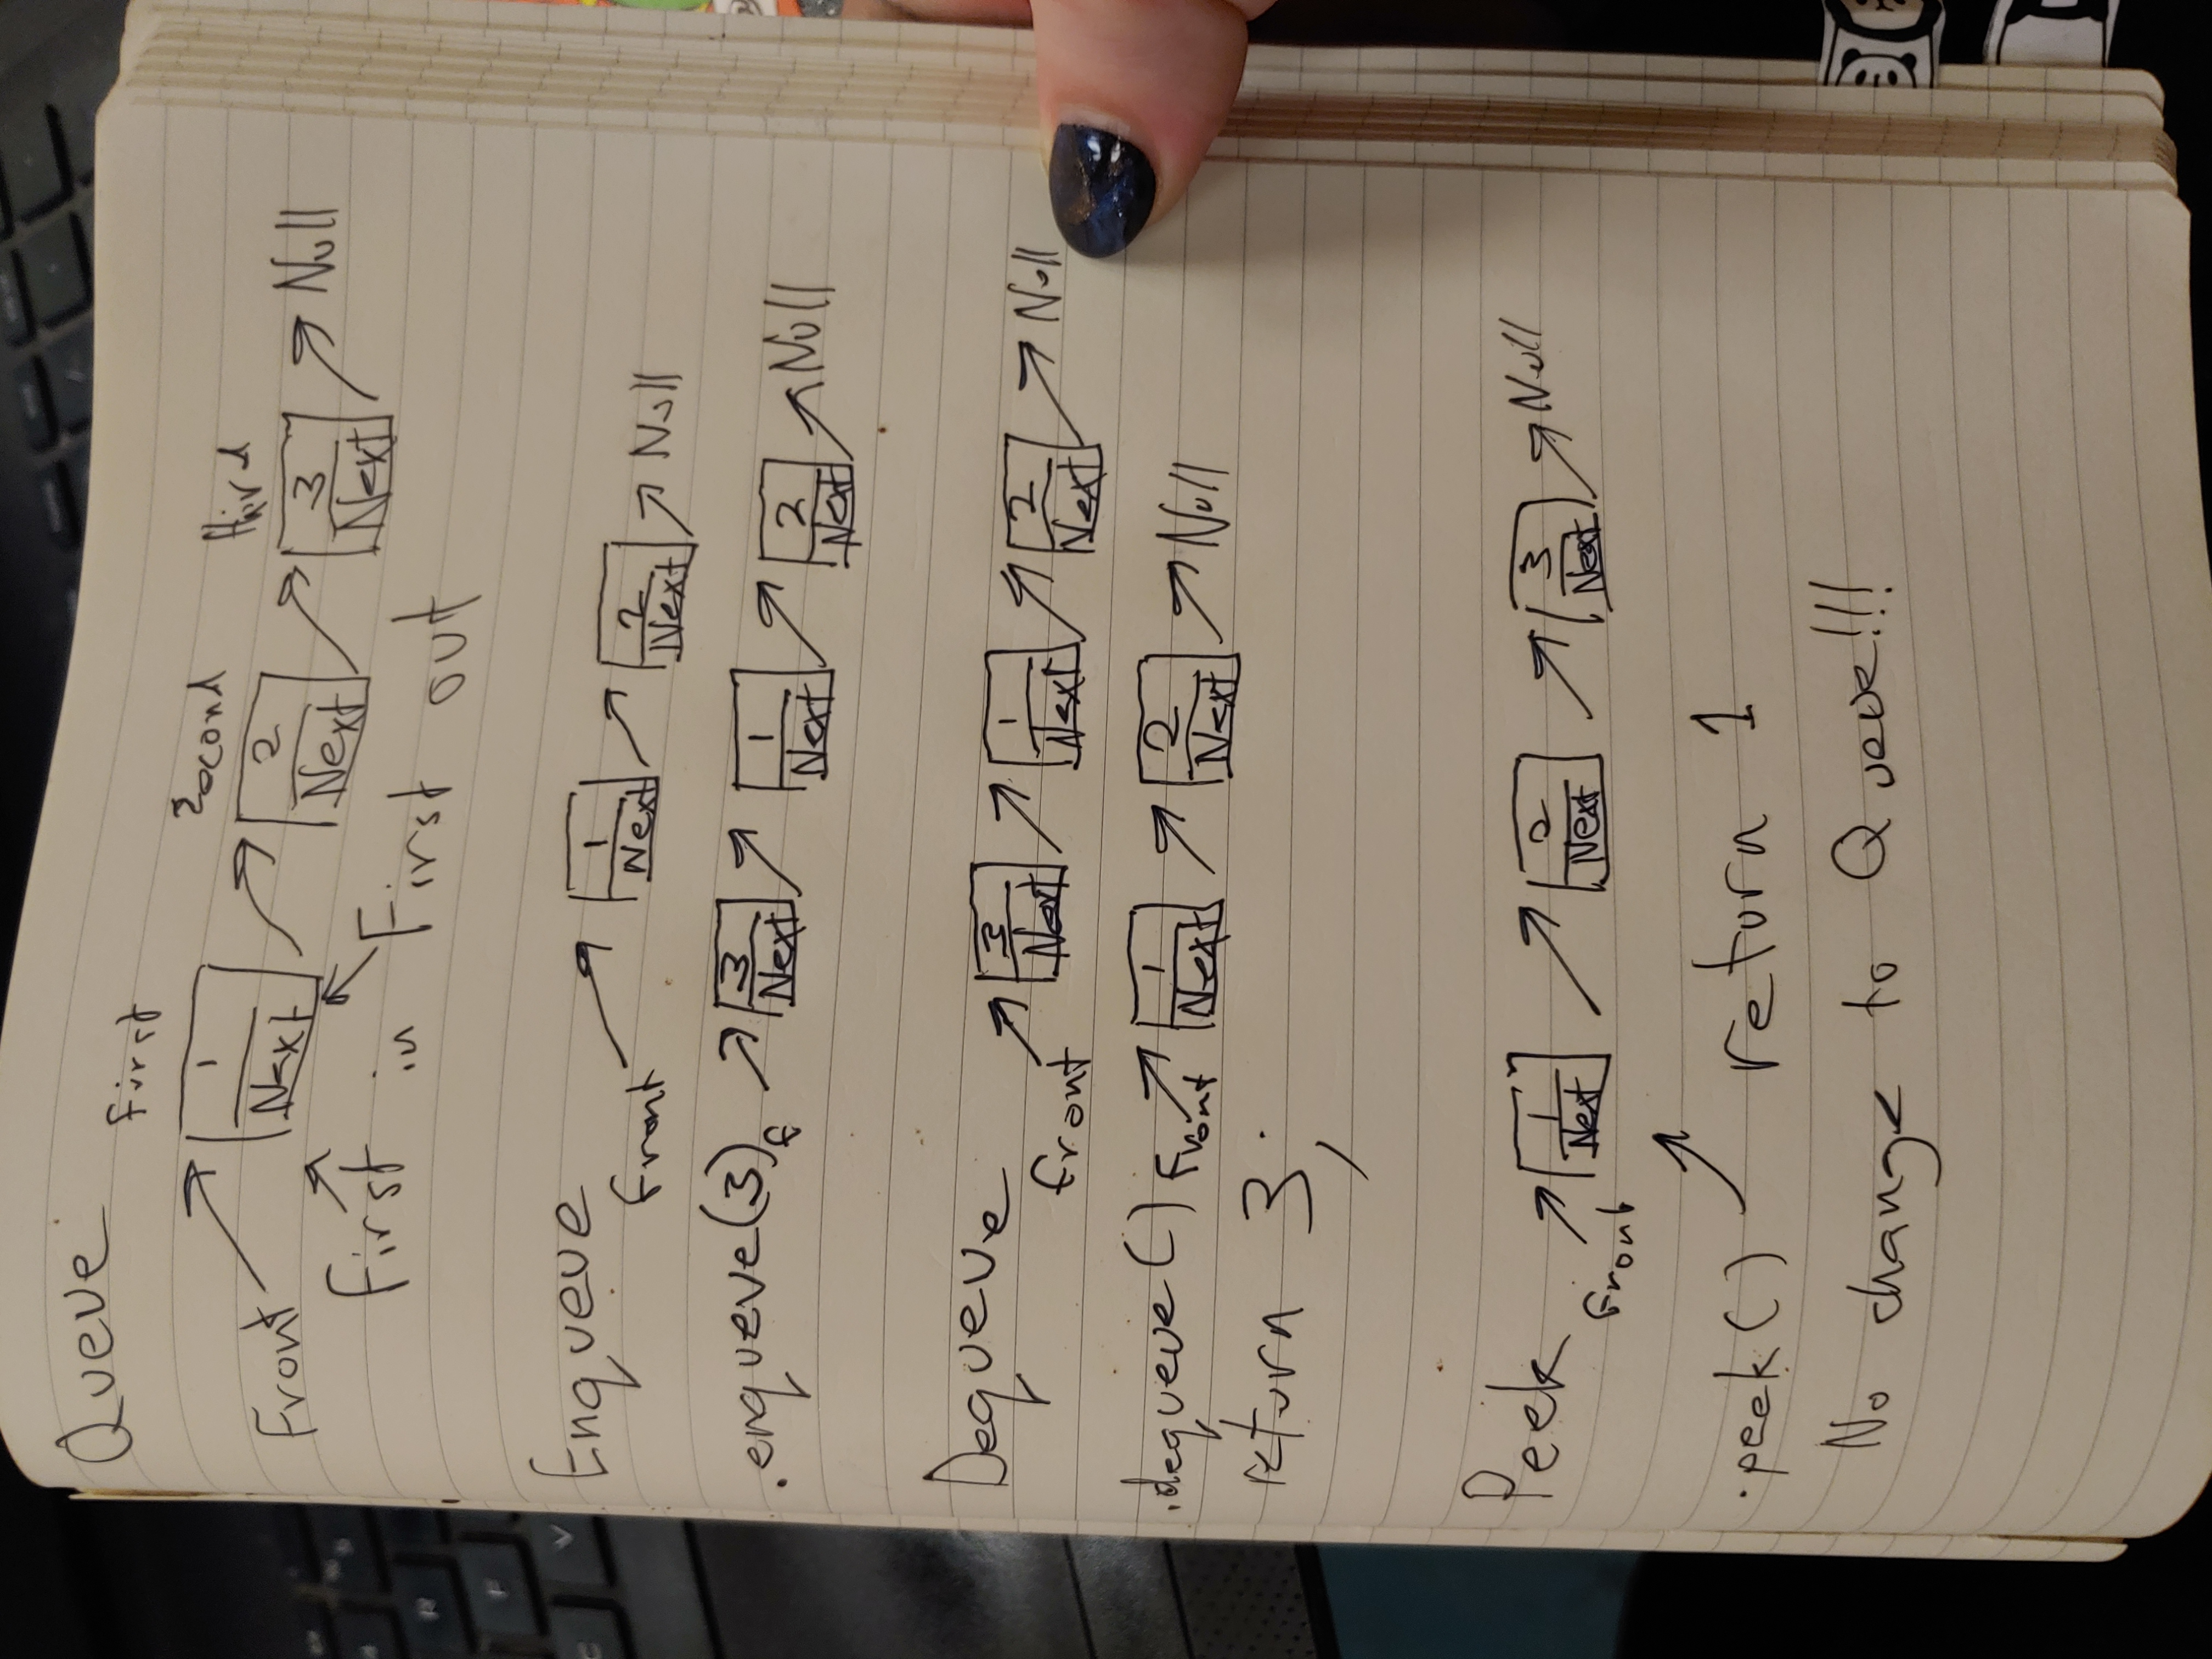 Queue
first
second
third
Front
1
Next
2
Next
3
Next
Null
First in First out
Enqueue
front
1
Next
2
Next
Null
.enqueue(3)
f
3
Next
1
Next
2
Next
Null
Dequeue
front
3
Next
1
Next
2
Next
Null
.dequeue()
Front
1
Next
2
Next
Null
return 3;
Peek
Front
1
Next
2
Next
3
Next
Null
.peek() return 1
No change to Queue!!!
R
F
V
C